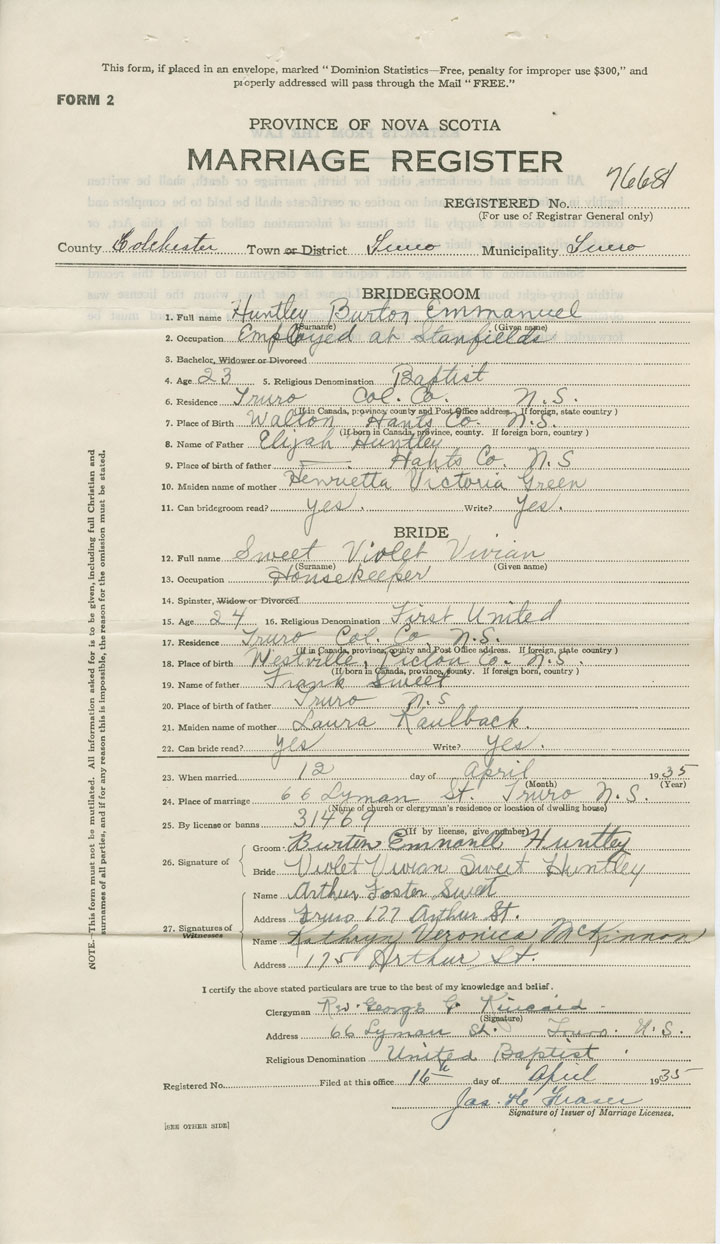 This form, if placed in an envelope, marked "Dominion Statistics—Free, penalty for improper use $300," and
properly addressed will pass through the Mail "FREE."
FORM 2
PROVINCE OF NOVA SCOTIA
MARRIAGE REGISTER
76681
REGISTERED No.
(For use of Registrar General only)
County Colchester Town or District Truro Municipality Truro
BRIDEGROOM
1. Full name Huntley Burton Emmanuel
(Surname) (Given name)
2. Occupation Employed at Stanfields
3. Bachelor, Widower or Divorced
4. Age 23 5. Religious Denomination Baptist
6. Residence Truro Col. Co. N.S.
(If in Canada, province, county and Post Office address. If foreign, state country)
7. Place of Birth Walton Hants Co. N.S.
(If born in Canada, province, county. If foreign born, country)
8. Name of Father Elijah Huntley
9. Place of birth of father — Hants Co. N.S
10. Maiden name of mother Henrietta Victoria Green
11. Can bridegroom read? yes. Write? yes.
BRIDE
12. Full name Sweet Violet Vivian
(Surname) (Given name)
13. Occupation Housekeeper
14. Spinster, Widow or Divorced
15. Age 24 16. Religious Denomination First United
17. Residence Truro Col. Co N.S.
(If in Canada, province, county and Post Office address. If foreign, state country)
18. Place of birth Westville, Pictou Co. N.S.
(If born in Canada, province, county. If foreign born, country)
19. Name of father Frank Sweet
20. Place of birth of father Truro N.S
21. Maiden name of mother Laura Kaulback.
22. Can bride read? yes Write? yes.
23. When married 12 day of April 1935
(Month) (Year)
24. Place of marriage 66 Lyman St. Truro N.S.
(Name of church or clergyman's residence or location of dwelling house)
25. By license or banns 31469
(If by license, give number)
26. Signature of Groom Burton Emmanuell Huntley
Bride Violet Vivian Sweet Huntley
27. Signatures of Witnesses
Name Arthur Foster Sweet
Address Truro 177 Arthur St.
Name Kathryn Veronica McKinnon
Address 175 Arthur St.
NOTE.—This form must not be mutilated. All information asked for is to be given, including full Christian and
surnames of all parties, and if for any reason this is impossible, the reason for the omission must be stated.
I certify the above stated particulars are true to the best of my knowledge and belief.
Clergyman Rev. George G. Kincaid
(Signature)
Address 66 Lyman St. Truro. N.S.
Religious Denomination United Baptist
Registered No. Filed at this office 16th day of April 1935
Jas. H. Fraser
Signature of Issuer of Marriage Licenses.
[SEE OTHER SIDE]